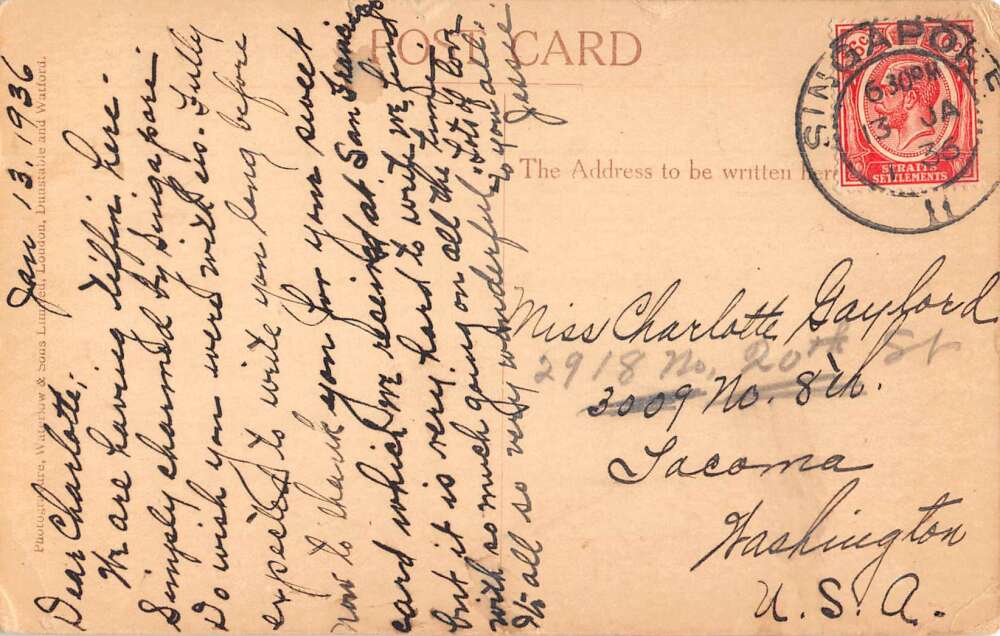 POST CARD
Photogravure, Waterlow & Sons Limited, London, Dunstable and Watford.
Jan 13, 1936
Dear Charlotte:
We are having tiffin here.
Simply charmed by Singapore
Do wish you were with us. Fully
expected to write you long before
now to thank you for your sweet
card which we received at San Francisco
but it is very hard to write we find
with so much going on all the time
It's all so very wonderful. Lots of love
to you all.
Jessie
The Address to be written here
SINGAPORE
6 30 PM
13 JA
36
11
6c 6c
STRAITS
SETTLEMENTS
Miss Charlotte Gayford
2918 No. 20th St
3009 No. 8th.
Tacoma
Washington
U. S. A.